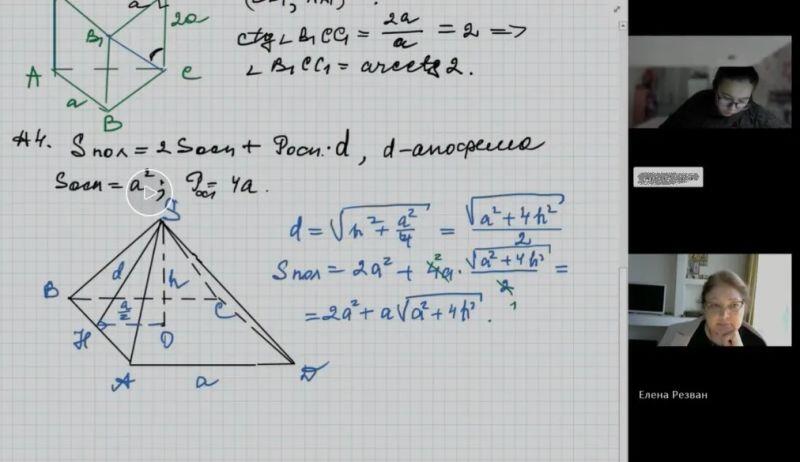 a
2a
B₁
A
C
a
B
ctg∠B₁CC₁ = 2a/a = 2 =>
∠B₁CC₁ = arcctg 2.
A4. Sпол = 2Sосн + Pосн·d, d-апофема
Sосн = a²; Pосн = 4a.
S
B
d
h
C
a/2
H
O
A
a
D
d = √(h² + a²/4) = √(a² + 4h²)/2
Sпол = 2a² + 4a · √(a² + 4h²)/2 =
= 2a² + a√(a² + 4h²).
2
1
Елена Резван